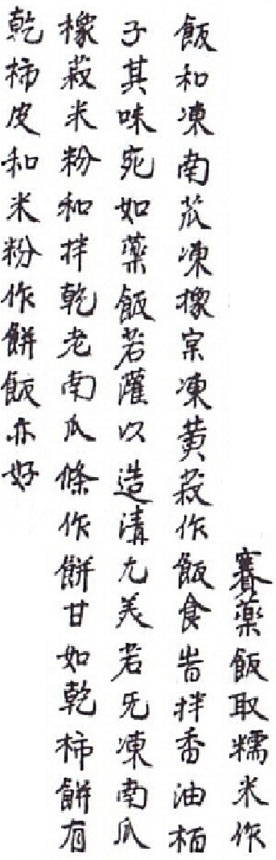 賽藥飯取糯米作
飯和凍南苽凍橡宗凍黃菽作飯食時拌香油栢
子其味宛如藥飯若灌以造淸尤美若旡凍南瓜
橡菽米粉和拌乾老南瓜條作餠甘如乾柿餠有
乾柿皮和米粉作餠飯亦好